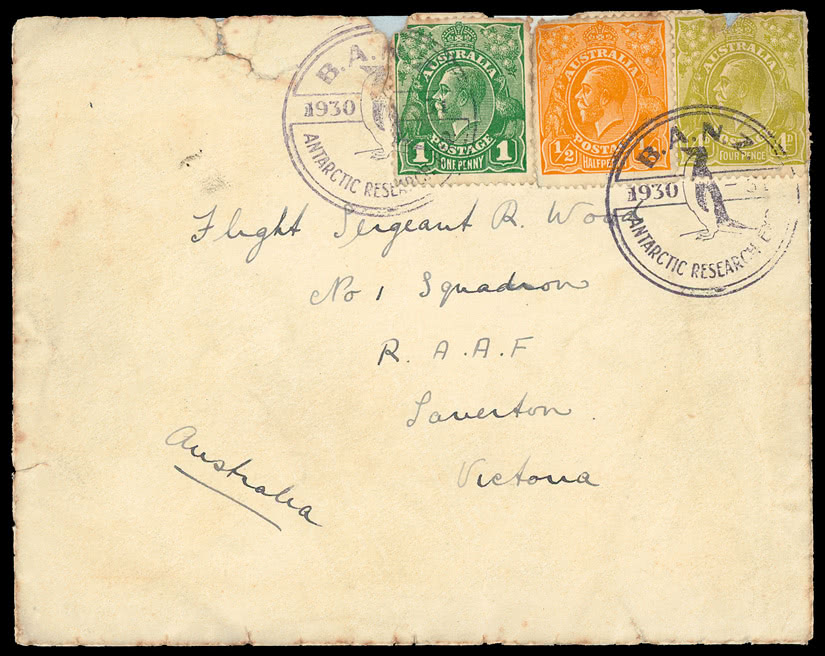 B.A.
1930
ANTARCTIC RESEARCH
AUSTRALIA
POSTAGE
1 ONE PENNY 1
AUSTRALIA
POSTAGE
½ HALFPENNY
AUSTRALIA
FOUR PENCE
B.A.N.Z.
1930 – 31
ANTARCTIC RESEARCH EXP
Flight Sergeant R. Wood
No 1 Squadron
R. A. A. F
Laverton.
Victoria
Australia